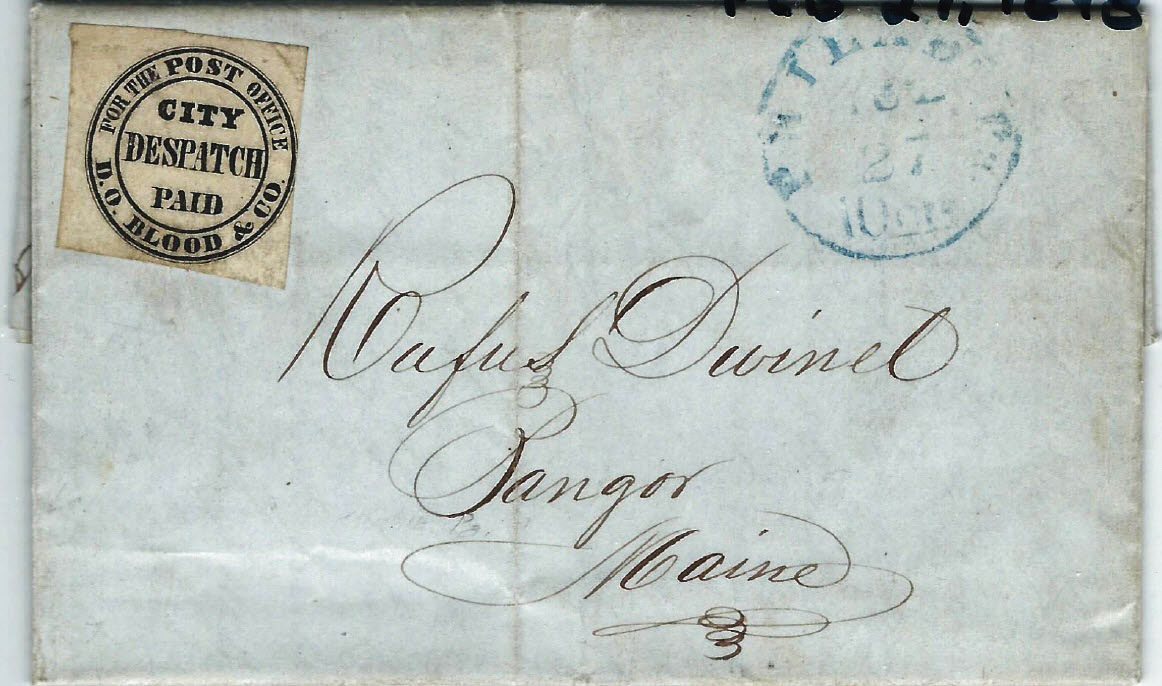 FOR THE POST OFFICE
CITY
DESPATCH
PAID
D.O. BLOOD & CO.
27
10 cts
Rufus Dwinel
Bangor
Maine